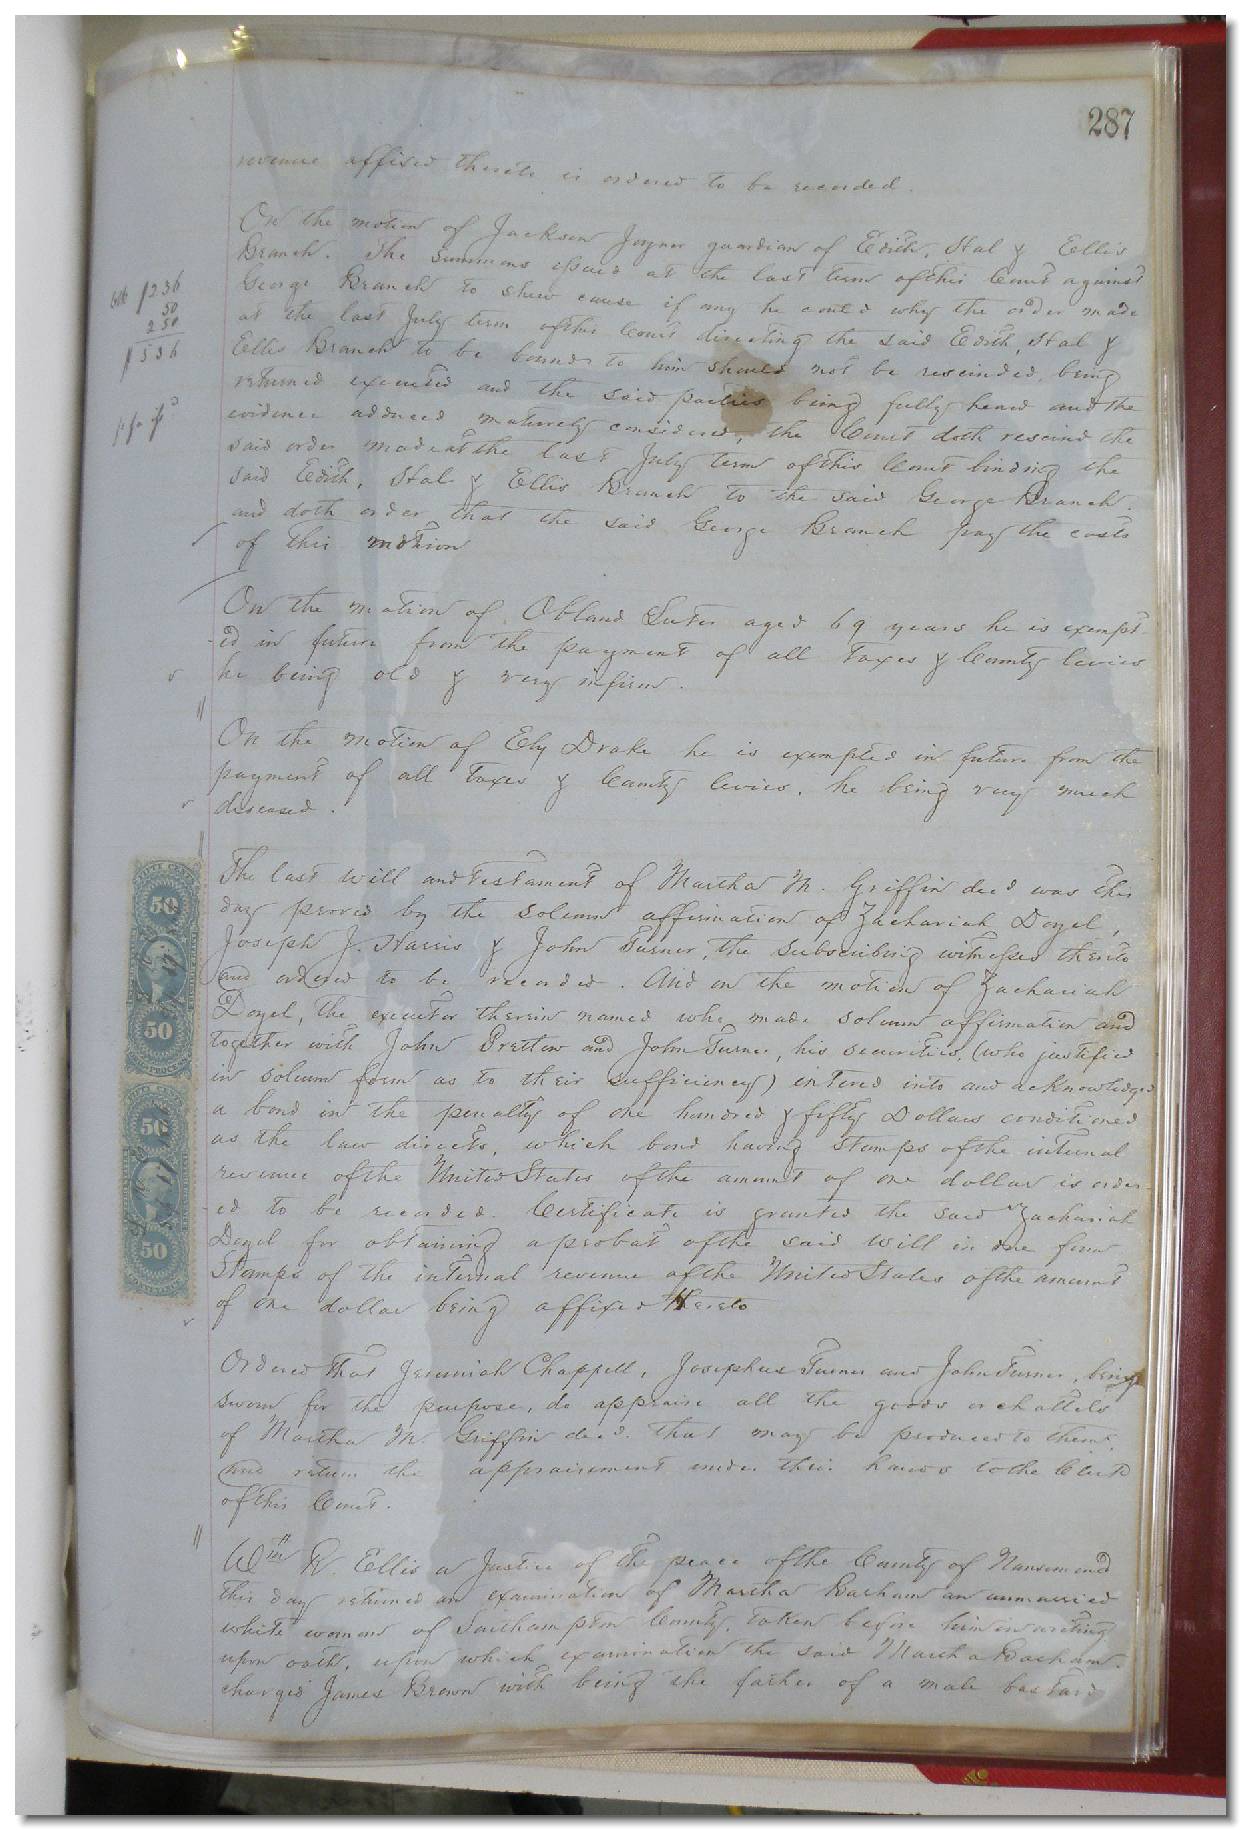 287
revenue affixed thereto is ordered to be recorded.
On the motion of Jackson Joyner guardian of Edith, Hal & Ellis
Branch. The summons issued at the last term of this Court against
George Branch to shew cause if any he could why the order made
at the last July term of this Court directing the said Edith, Hal &
Ellis Branch to be bound to him should not be rescinded, being
returned executed and the said parties being fully heard and the
evidence adduced maturely considered, the Court doth rescind the
said order made at the last July term of this Court binding the
said Edith, Hal & Ellis Branch to the said George Branch.
and doth order that the said George Branch pay the costs
of this motion
$236
50
250
$536
On the motion of Obland Suter aged 69 years he is exempt
-ed in future from the payment of all Taxes & County levies
he being old & very infirm.
On the motion of Ely Drake he is exempted in future from the
payment of all Taxes & County levies, he being very much
diseased.
The last will and testament of Martha M. Griffin decd was this
day proved by the solemn affirmation of Zachariah Doyel,
Joseph J. Harris & John Turner, the subscribing witnesses thereto
and ordered to be recorded. And on the motion of Zachariah
Doyel, the executor therein named who made solemn affirmation and
together with John Pretlow and John Turner, his securities, (who justified
in solemn form as to their sufficiency) entered into and acknowledged
a bond in the penalty of one hundred & fifty Dollars conditioned
as the law directs, which bond having stamps of the internal
revenue of the United States of the amount of one dollar is order-
-ed to be recorded. Certificate is granted the said Zachariah
Doyel for obtaining a probat of the said will in due form
Stamps of the internal revenue of the United States of the amount
of one dollar being affixed thereto
50
50
50
50
Ordered that Jeremiah Chappell, Josephus Turner and John Turner, being
sworn for the purpose, do appraise all the goods or chattels
of Martha M. Griffin decd. that may be produced to them,
and return the appraisement under their hands to the Clerk
of this Court.
Wm R. Ellis a Justice of the peace of the County of Nansemond
this day returned an examination of Martha Barham an unmarried
white woman of Southampton County, taken before him in writing
upon oath, upon which examination the said Martha Barham
charged James Brown with being the father of a male bastard